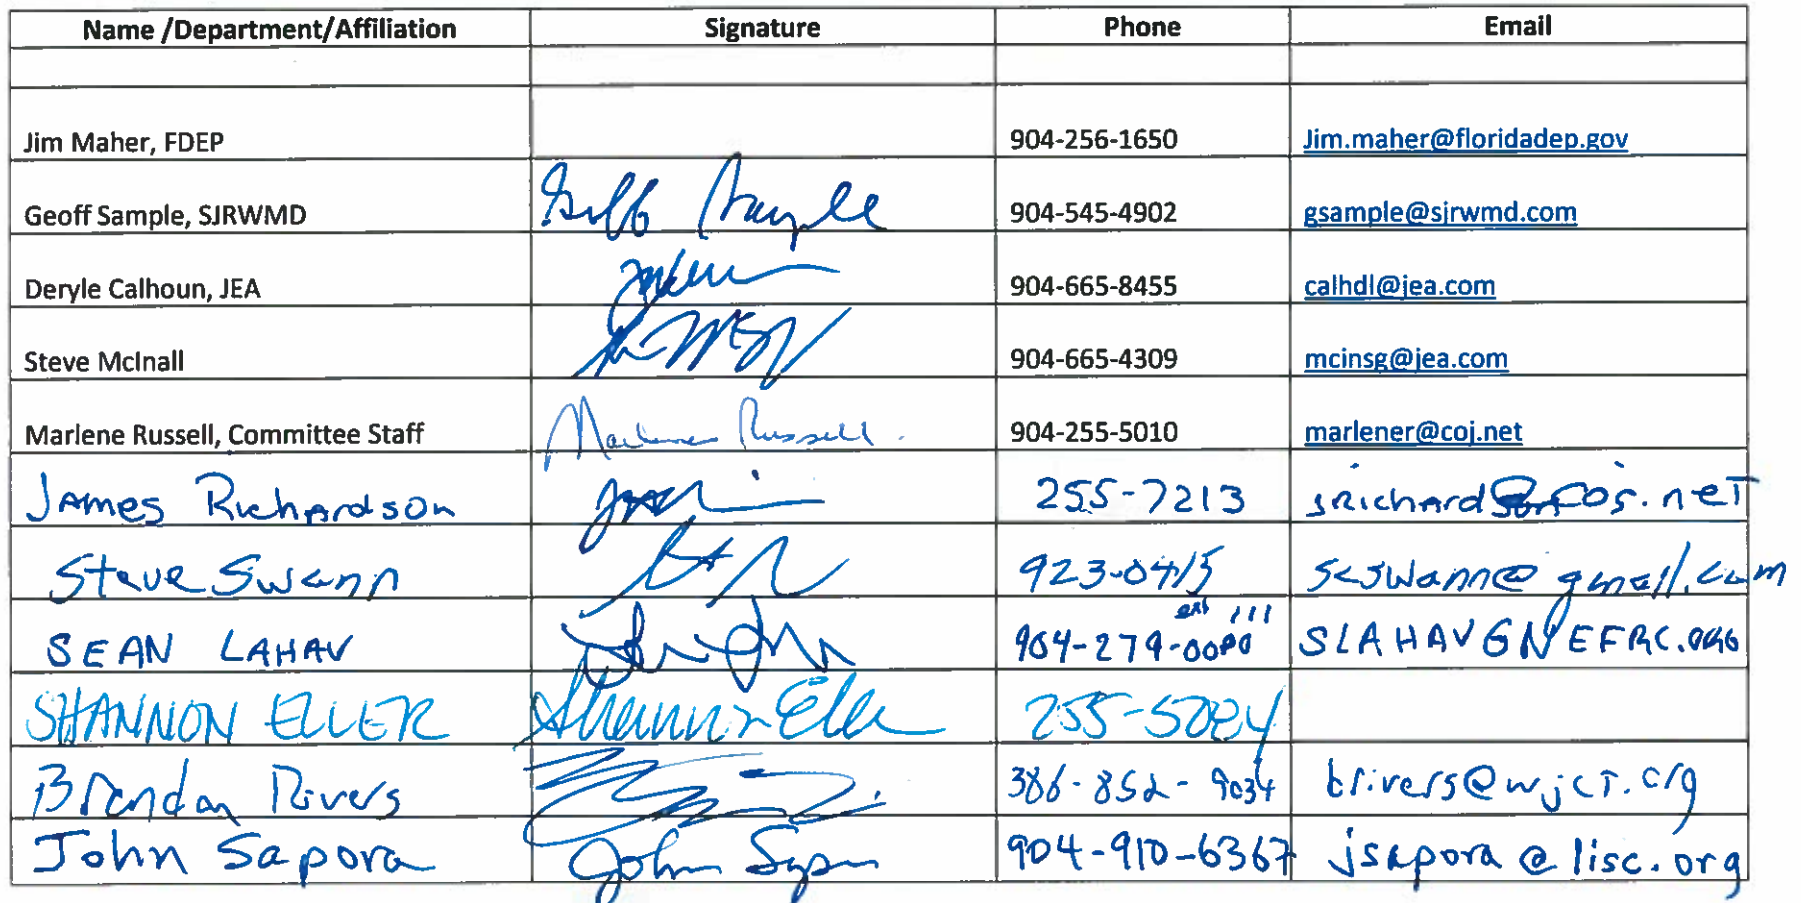 Name /Department/Affiliation Signature Phone Email
Jim Maher, FDEP 904-256-1650 Jim.maher@floridadep.gov
Geoff Sample, SJRWMD Geoff Sample 904-545-4902 gsample@sjrwmd.com
Deryle Calhoun, JEA 904-665-8455 calhdl@jea.com
Steve McInall 904-665-4309 mcinsg@jea.com
Marlene Russell, Committee Staff Marlene Russell 904-255-5010 marlener@coj.net
JAMes RichARdson 255-7213
Steve Swann 923-0415 scswann@gmail.com
SEAN LAHAV 904-279-0880 ext 111 SLAHAV@NEFRC.ORG
SHANNON ELLER Shannon Eller 255-5084
Brendan Rivers 386-852-9034 brivers@wjct.org
John Sapora John Sapora 904-910-6367 jsapora@lisc.org